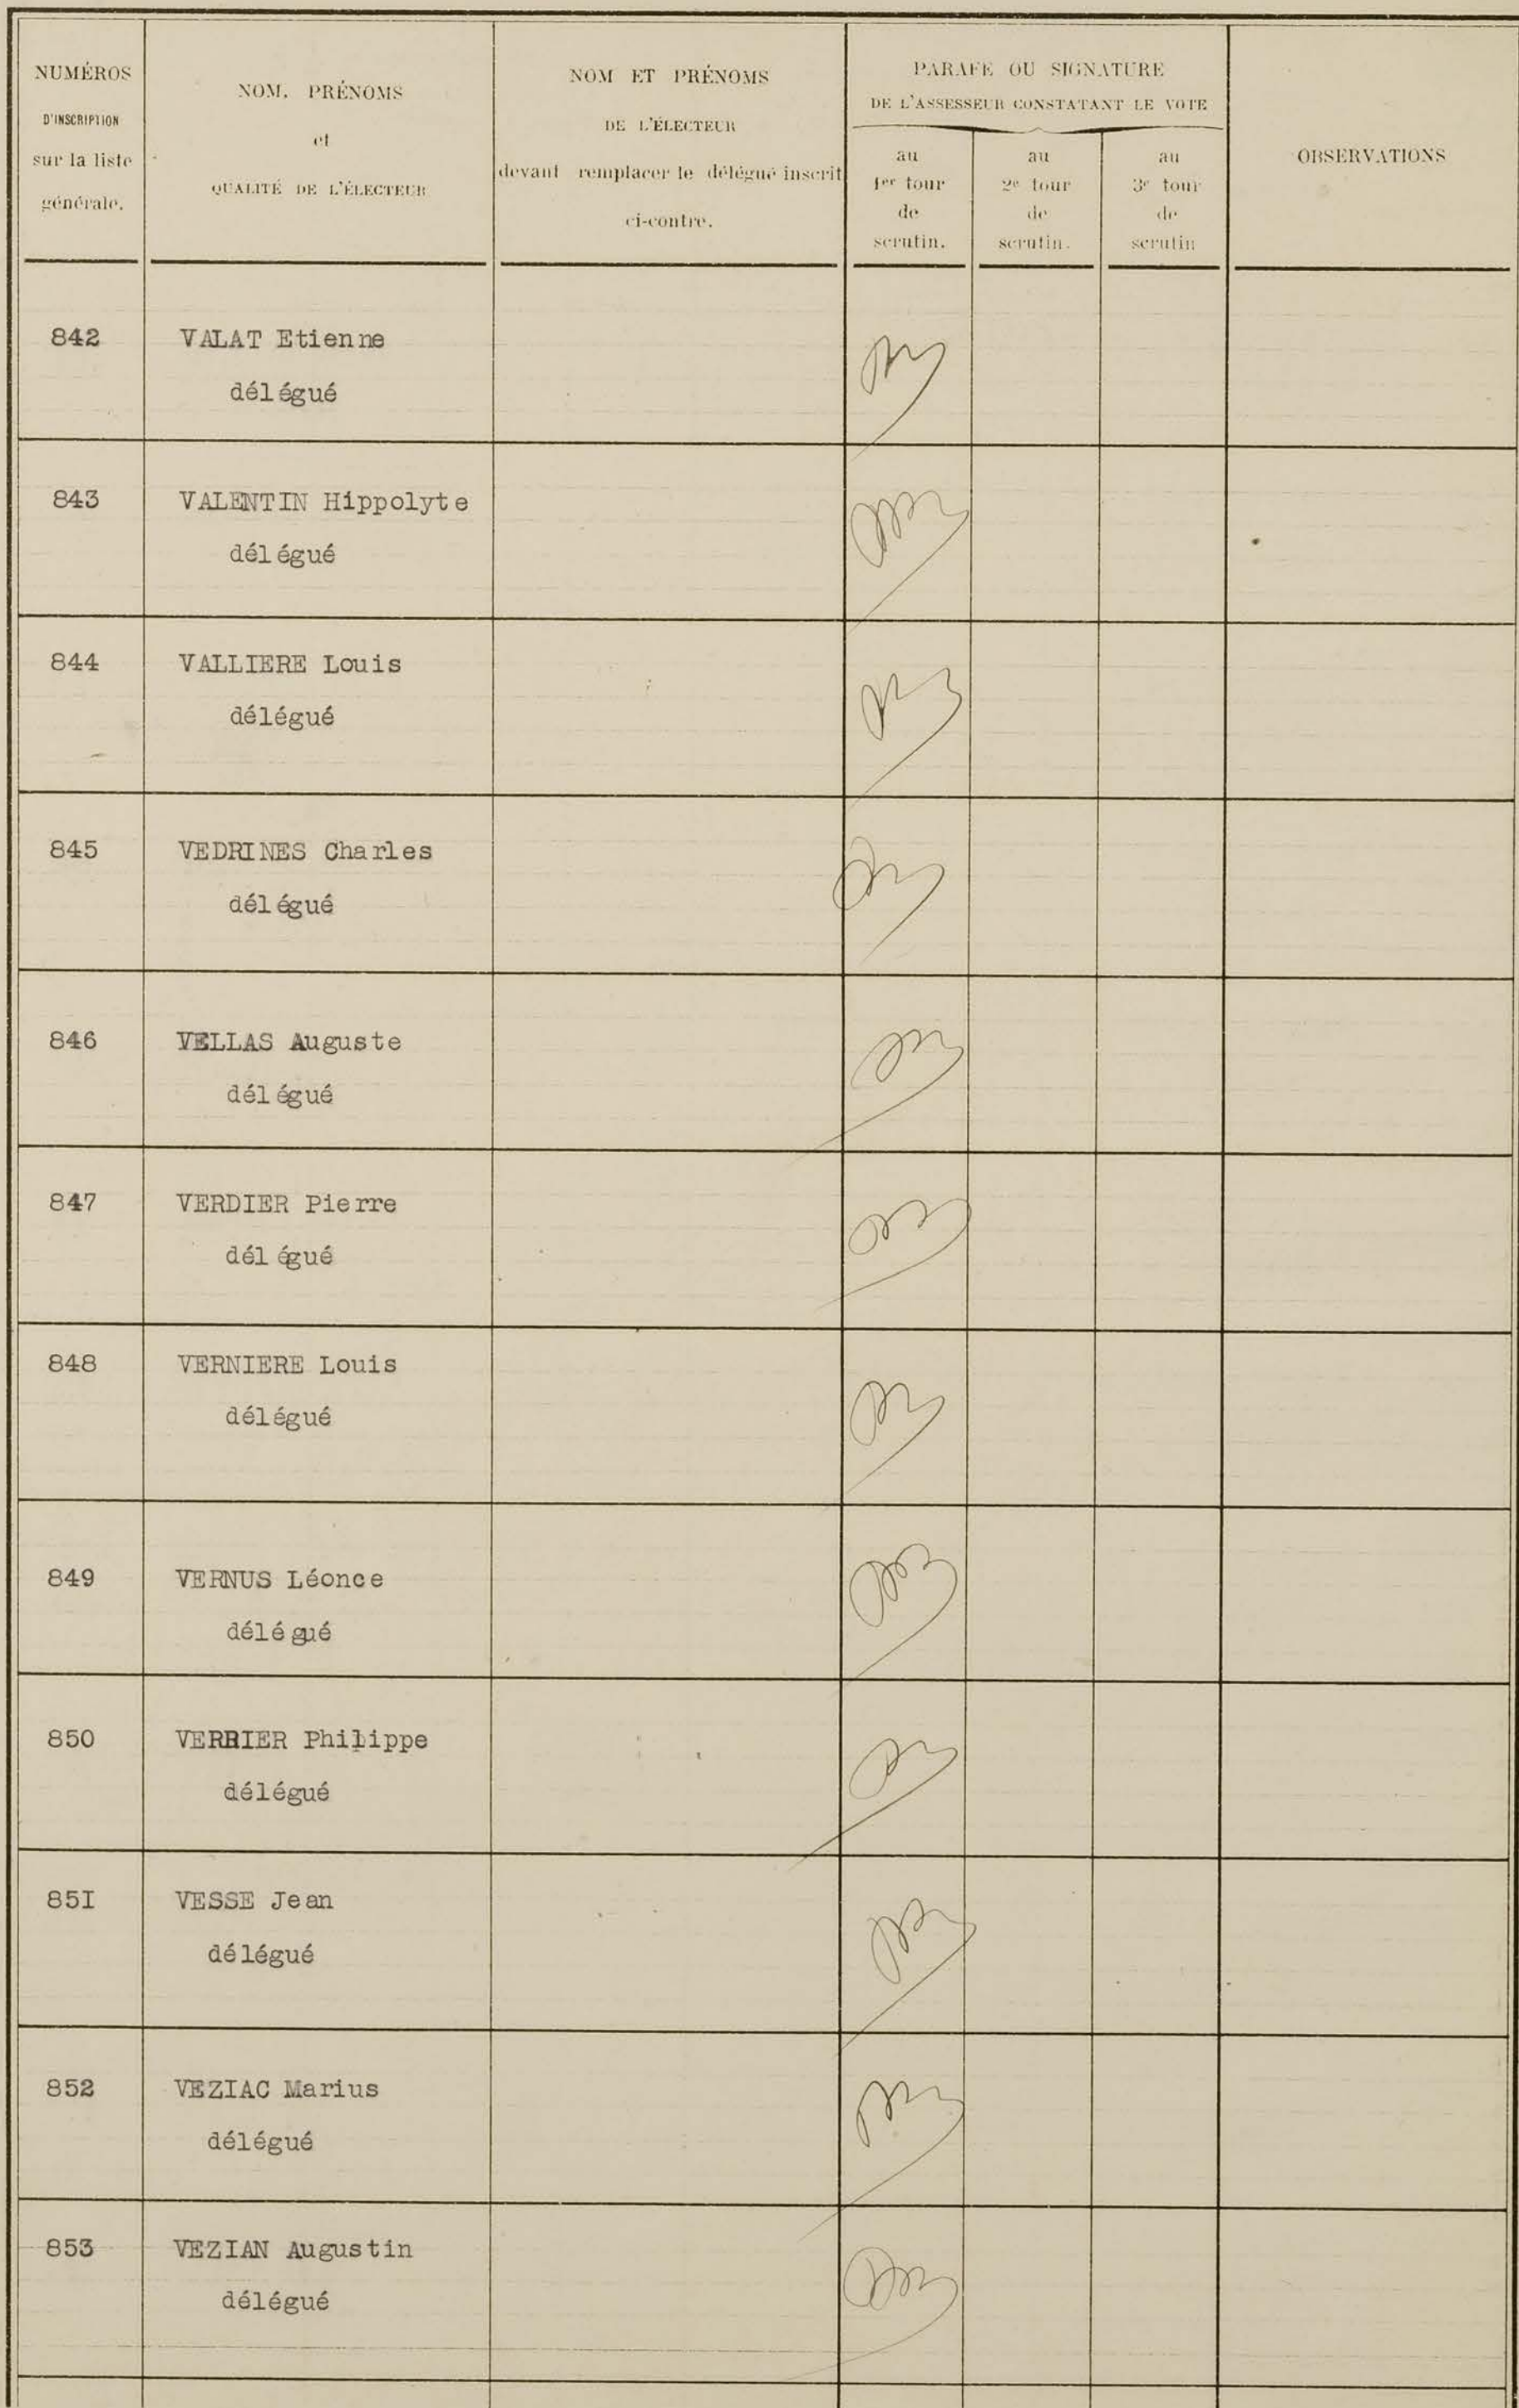 NUMÉROS
D'INSCRIPTION
sur la liste
générale.
NOM, PRÉNOMS
et
QUALITÉ DE L'ÉLECTEUR
NOM ET PRÉNOMS
DE L'ÉLECTEUR
devant remplacer le délégué inscrit
ci-contre.
PARAFE OU SIGNATURE
DE L'ASSESSEUR CONSTATANT LE VOTE
au
1er tour
de
scrutin.
au
2e tour
de
scrutin.
au
3e tour
de
scrutin
OBSERVATIONS
842 VALAT Etienne
délégué
843 VALENTIN Hippolyte
délégué
844 VALLIERE Louis
délégué
845 VEDRINES Charles
délégué
846 VELLAS Auguste
délégué
847 VERDIER Pierre
délégué
848 VERNIERE Louis
délégué
849 VERNUS Léonce
délégué
850 VERRIER Philippe
délégué
85I VESSE Jean
délégué
852 VEZIAC Marius
délégué
853 VEZIAN Augustin
délégué